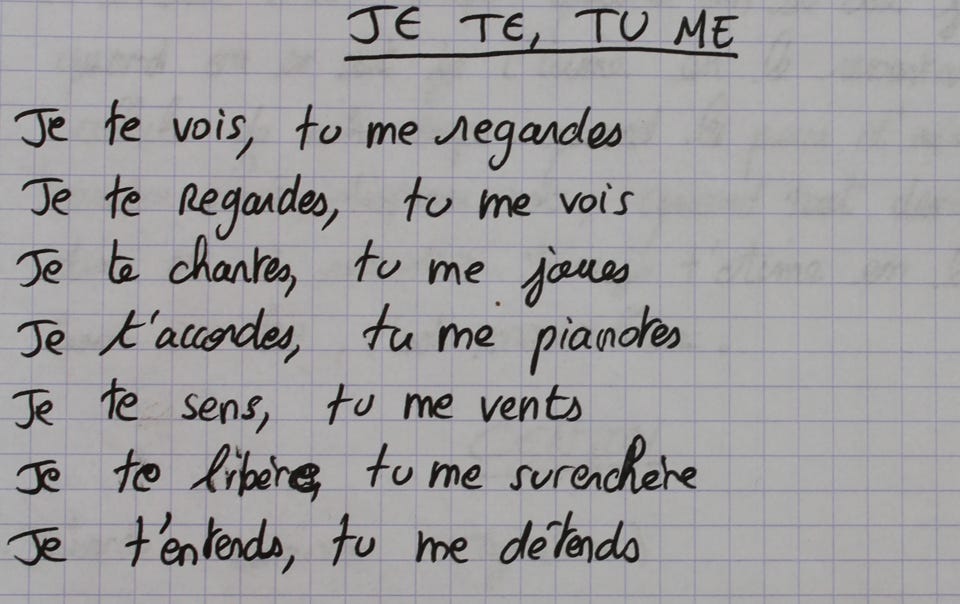 JE TE, TU ME
Je te vois, tu me regardes
Je te Regardes, tu me vois
Je te chantes, tu me joues
Je t'accordes, tu me pianotes
Je te sens, tu me vents
Je te libère, tu me surenchère
Je t'entends, tu me détends